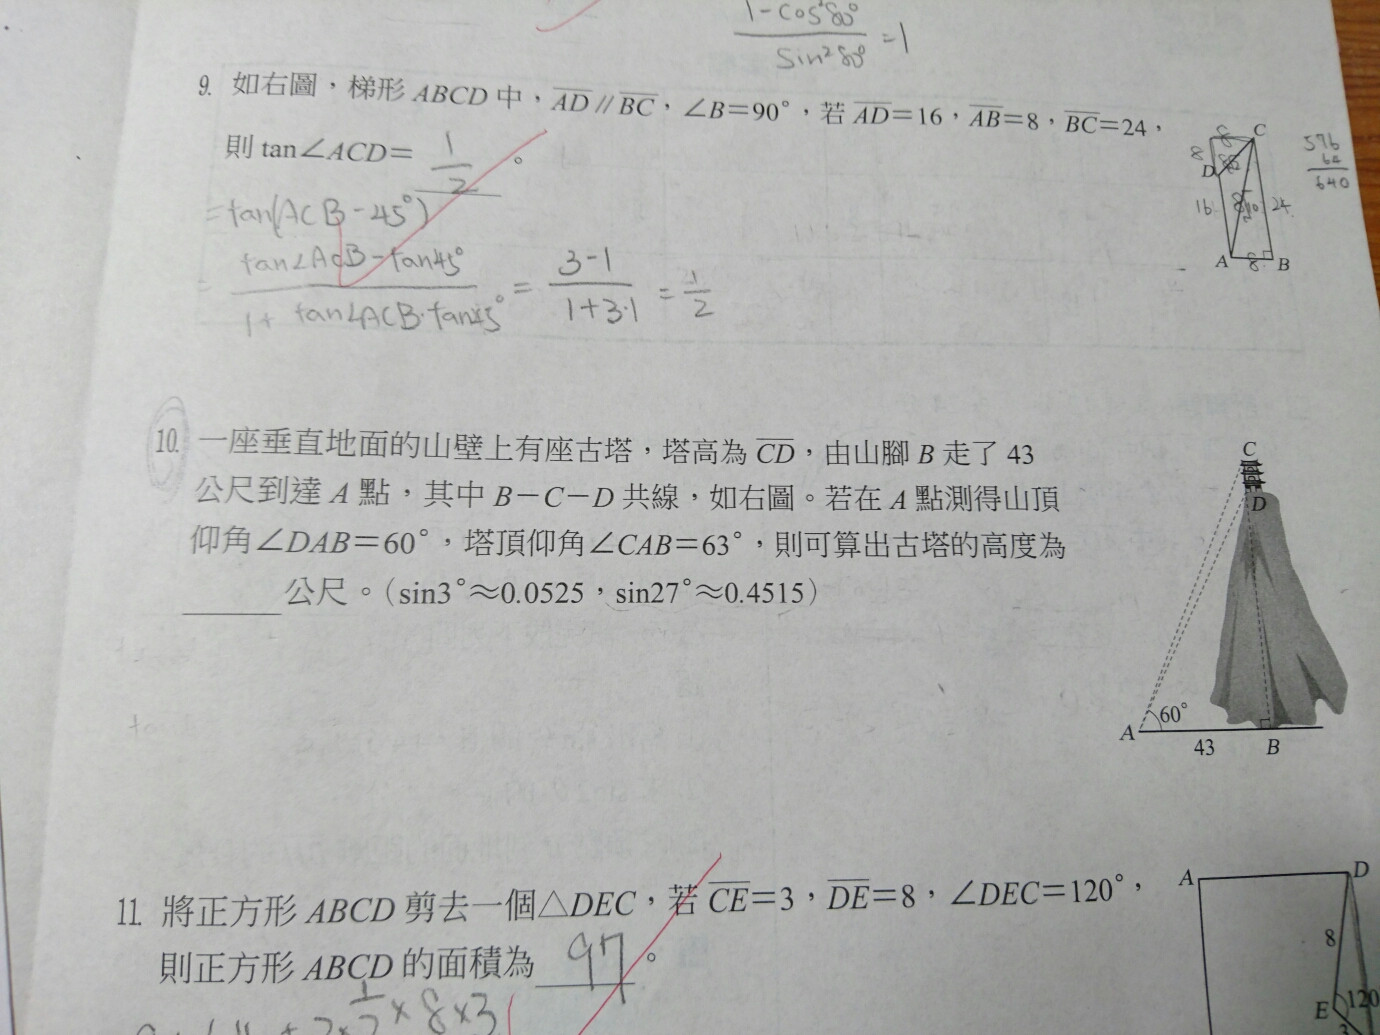 1-cos²80°
sin²80° =1
9. 如右圖，梯形 ABCD 中，AD // BC，∠B=90°，若 AD=16，AB=8，BC=24，
則 tan∠ACD= 1/2 。
=tan(ACB-45°)
= tan∠ACB-tan45° / 1+ tan∠ACB·tan45° = 3-1 / 1+3·1 = 1/2
8 C
8
D
16 24
A 8 B
576
64
640
10. 一座垂直地面的山壁上有座古塔，塔高為 CD，由山腳 B 走了 43
公尺到達 A 點，其中 B－C－D 共線，如右圖。若在 A 點測得山頂
仰角∠DAB=60°，塔頂仰角∠CAB=63°，則可算出古塔的高度為
______公尺。(sin3°≈0.0525，sin27°≈0.4515)
C
D
A 60°
43 B
11. 將正方形 ABCD 剪去一個△DEC，若 CE=3，DE=8，∠DEC=120°，
則正方形 ABCD 的面積為 97 。
A D
8
E 120
3